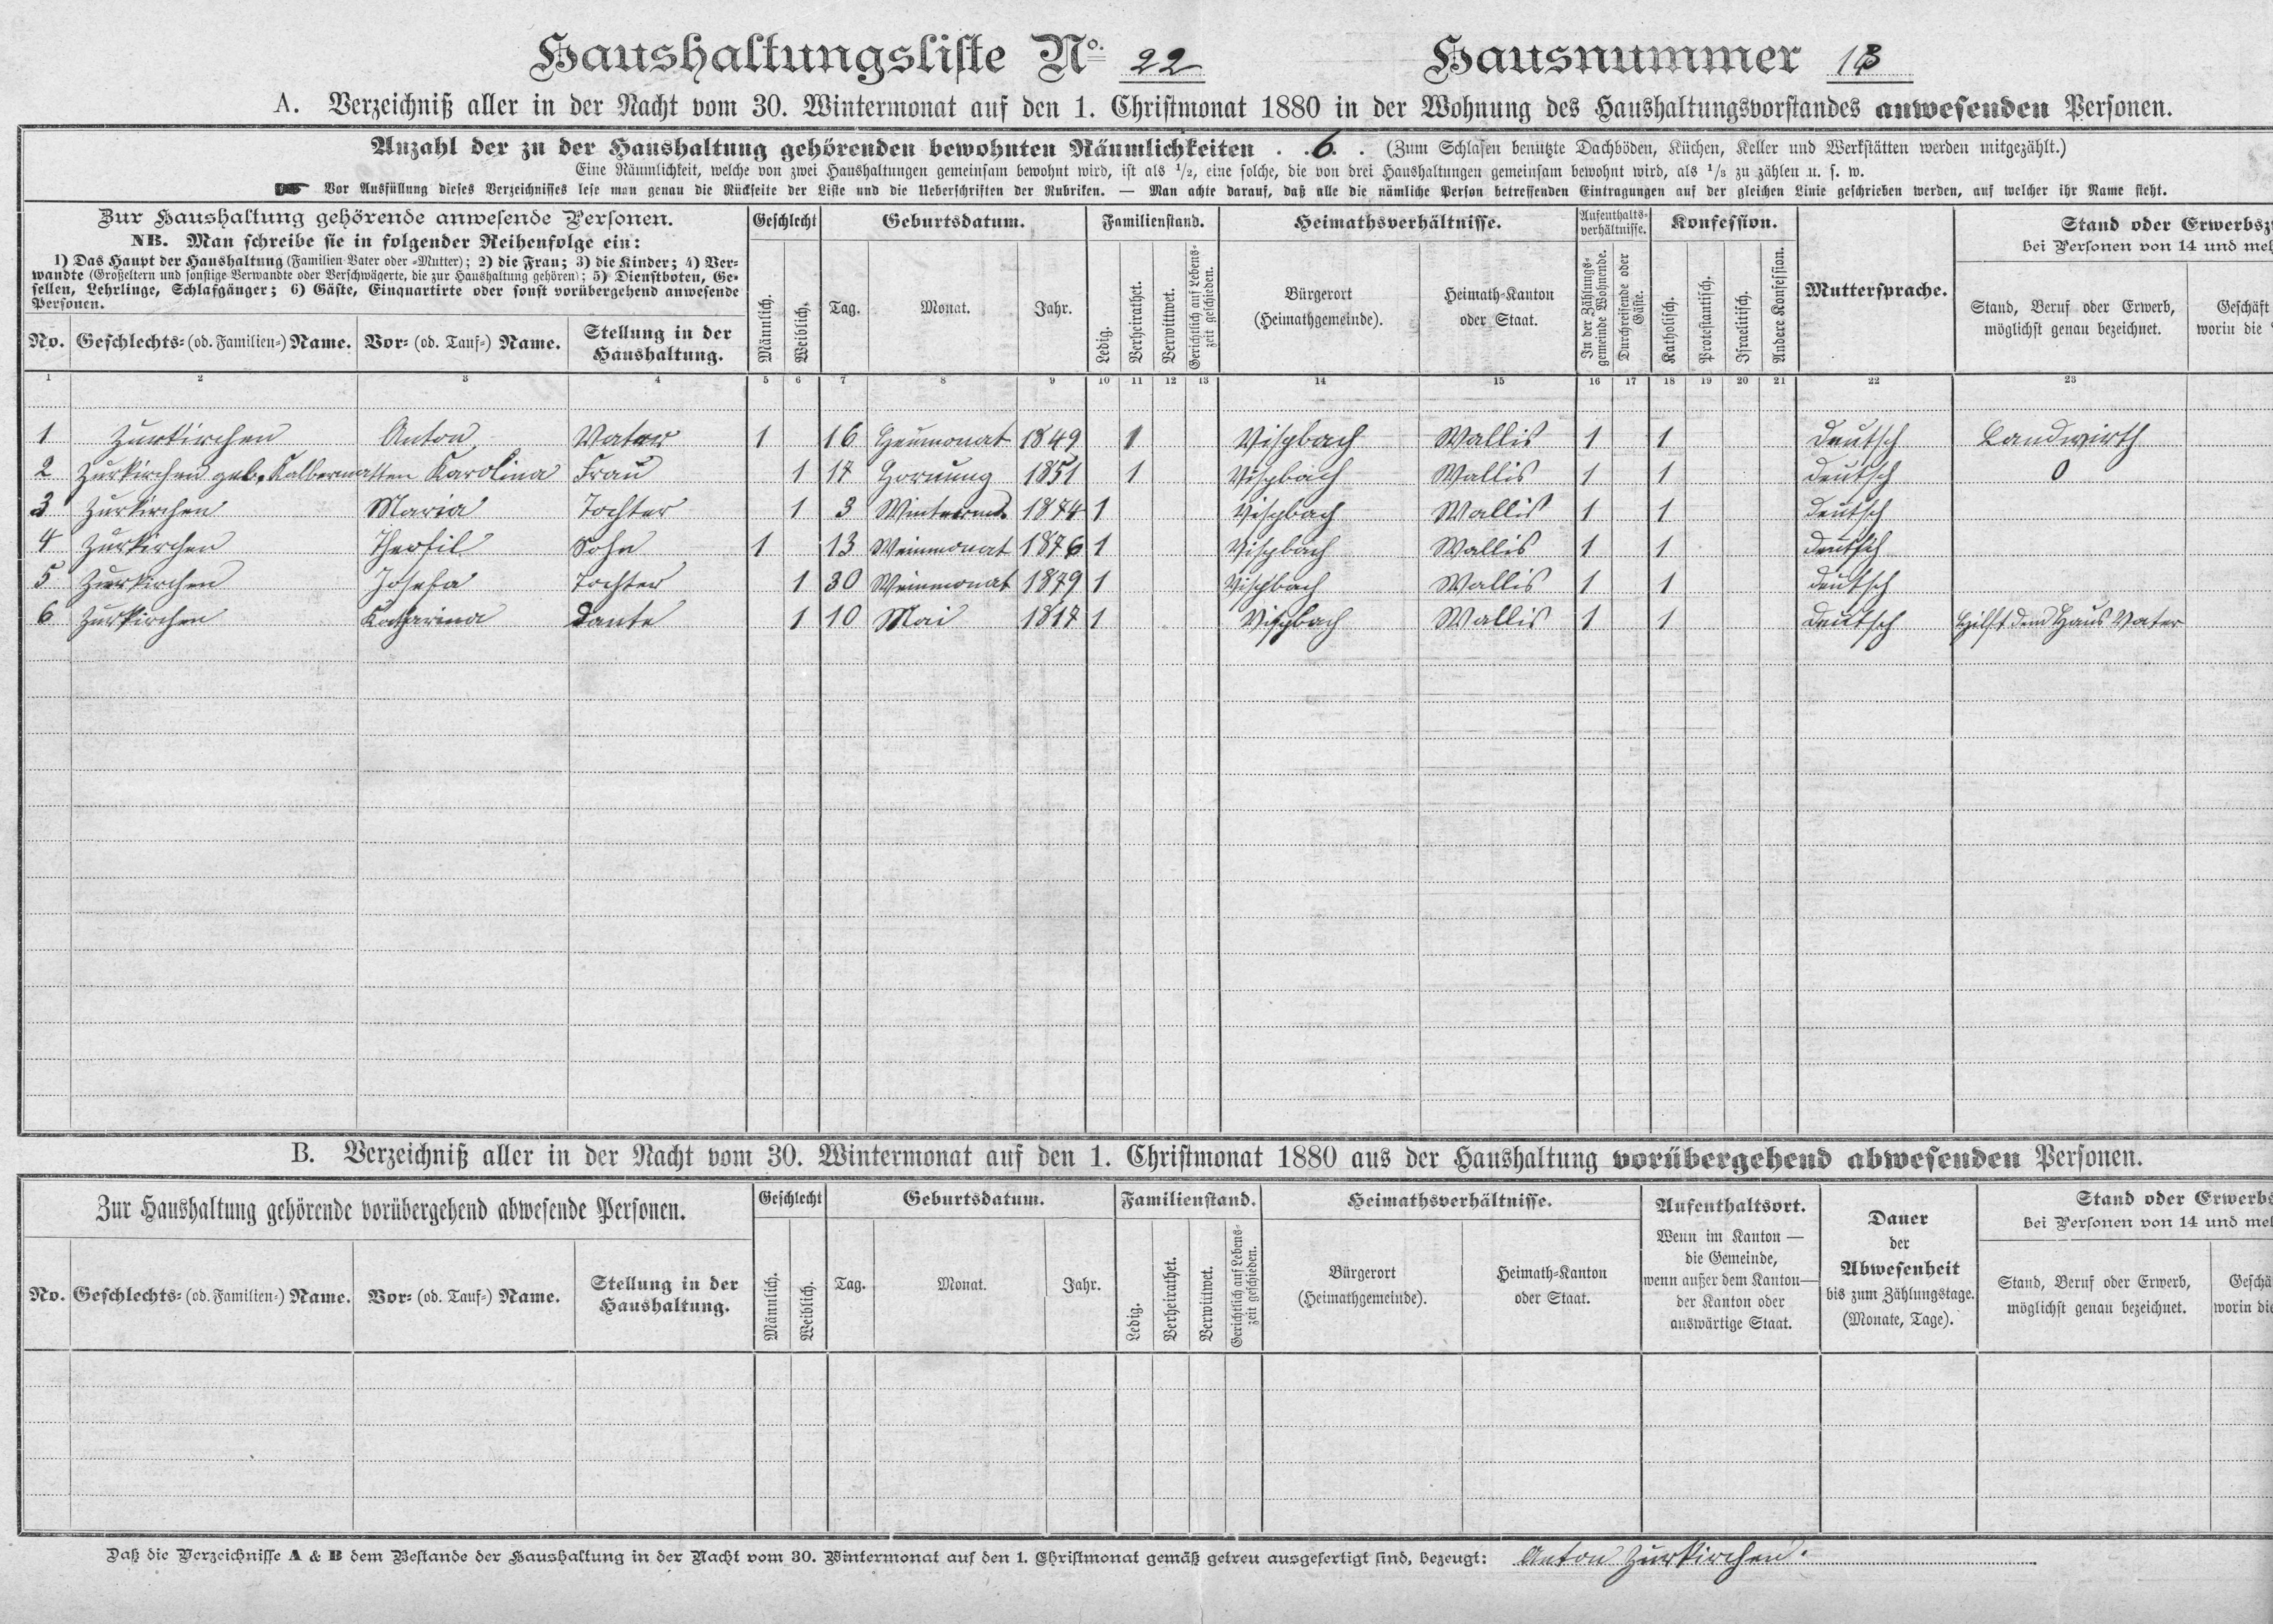 Haushaltungsliste No. 22 Hausnummer 13
A. Verzeichniß aller in der Nacht vom 30. Wintermonat auf den 1. Christmonat 1880 in der Wohnung des Haushaltungsvorstandes anwesenden Personen.
Anzahl der zu der Haushaltung gehörenden bewohnten Räumlichkeiten . . 6. . (Zum Schlafen benützte Dachböden, Küchen, Keller und Werkstätten werden mitgezählt.)
Eine Räumlichkeit, welche von zwei Haushaltungen gemeinsam bewohnt wird, ist als 1/2, eine solche, die von drei Haushaltungen gemeinsam bewohnt wird, als 1/3 zu zählen u. s. w.
Vor Ausfüllung dieses Verzeichnisses lese man genau die Rückseite der Liste und die Ueberschriften der Rubriken. — Man achte darauf, daß alle die nämliche Person betreffenden Eintragungen auf der gleichen Linie geschrieben werden, auf welcher ihr Name steht.
Zur Haushaltung gehörende anwesende Personen.
NB. Man schreibe sie in folgender Reihenfolge ein:
1) Das Haupt der Haushaltung (Familien-Vater oder -Mutter); 2) die Frau; 3) die Kinder; 4) Ver-
wandte (Großeltern und sonstige Verwandte oder Verschwägerte, die zur Haushaltung gehören); 5) Dienstboten, Ge-
sellen, Lehrlinge, Schlafgänger; 6) Gäste, Einquartirte oder sonst vorübergehend anwesende
Personen.
No. Geschlechts- (od. Familien-) Name. Vor- (od. Tauf-) Name. Stellung in der
Haushaltung.
Geschlecht
Männlich. Weiblich.
Geburtsdatum.
Tag. Monat. Jahr.
Familienstand.
Ledig. Verheirathet. Verwittwet. Gerichtlich auf Lebens-
zeit geschieden.
Heimathsverhältnisse.
Bürgerort
(Heimathgemeinde).
Heimath-Kanton
oder Staat.
Aufenthalts-
verhältnisse.
In der Zählungs-
gemeinde Wohnende.
Durchreisende oder
Gäste.
Konfession.
Katholisch. Protestantisch. Israelitisch. Andere Konfession.
Muttersprache.
Stand oder Erwerbsz
bei Personen von 14 und meh
Stand, Beruf oder Erwerb,
möglichst genau bezeichnet.
Geschäft
worin die
1 2 3 4 5 6 7 8 9 10 11 12 13 14 15 16 17 18 19 20 21 22 23
1 Zurkirchen Anton Vater 1 16 Heumonat 1849 1 Vispbach Wallis 1 1 Deutsch Landwirth
2 Zurkirchen geb. Kalbermatten Karolina Frau 1 17 Hornung 1851 1 Vispbach Wallis 1 1 Deutsch 0
3 Zurkirchen Maria Tochter 1 3 Winterm. 1874 1 Vispbach Wallis 1 1 Deutsch
4 Zurkirchen Theofil Sohn 1 13 Weinmonat 1876 1 Vispbach Wallis 1 1 Deutsch
5 Zurkirchen Josefa Tochter 1 30 Weinmonat 1879 1 Vispbach Wallis 1 1 Deutsch
6 Zurkirchen Katharina Tante 1 10 Mai 1817 1 Vispbach Wallis 1 1 Deutsch Hilft dem Haus Vater
B. Verzeichniß aller in der Nacht vom 30. Wintermonat auf den 1. Christmonat 1880 aus der Haushaltung vorübergehend abwesenden Personen.
Zur Haushaltung gehörende vorübergehend abwesende Personen.
No. Geschlechts- (od. Familien-) Name. Vor- (od. Tauf-) Name. Stellung in der
Haushaltung.
Geschlecht
Männlich. Weiblich.
Geburtsdatum.
Tag. Monat. Jahr.
Familienstand.
Ledig. Verheirathet. Verwittwet. Gerichtlich auf Lebens-
zeit geschieden.
Heimathsverhältnisse.
Bürgerort
(Heimathgemeinde).
Heimath-Kanton
oder Staat.
Aufenthaltsort.
Wenn im Kanton —
die Gemeinde,
wenn außer dem Kanton—
der Kanton oder
auswärtige Staat.
Dauer
der
Abwesenheit
bis zum Zählungstage.
(Monate, Tage).
Stand oder Erwerbs
bei Personen von 14 und meh
Stand, Beruf oder Erwerb,
möglichst genau bezeichnet.
Geschä
worin die
Daß die Verzeichnisse A & B dem Bestande der Haushaltung in der Nacht vom 30. Wintermonat auf den 1. Christmonat gemäß getreu ausgefertigt sind, bezeugt: Anton Zurkirchen.